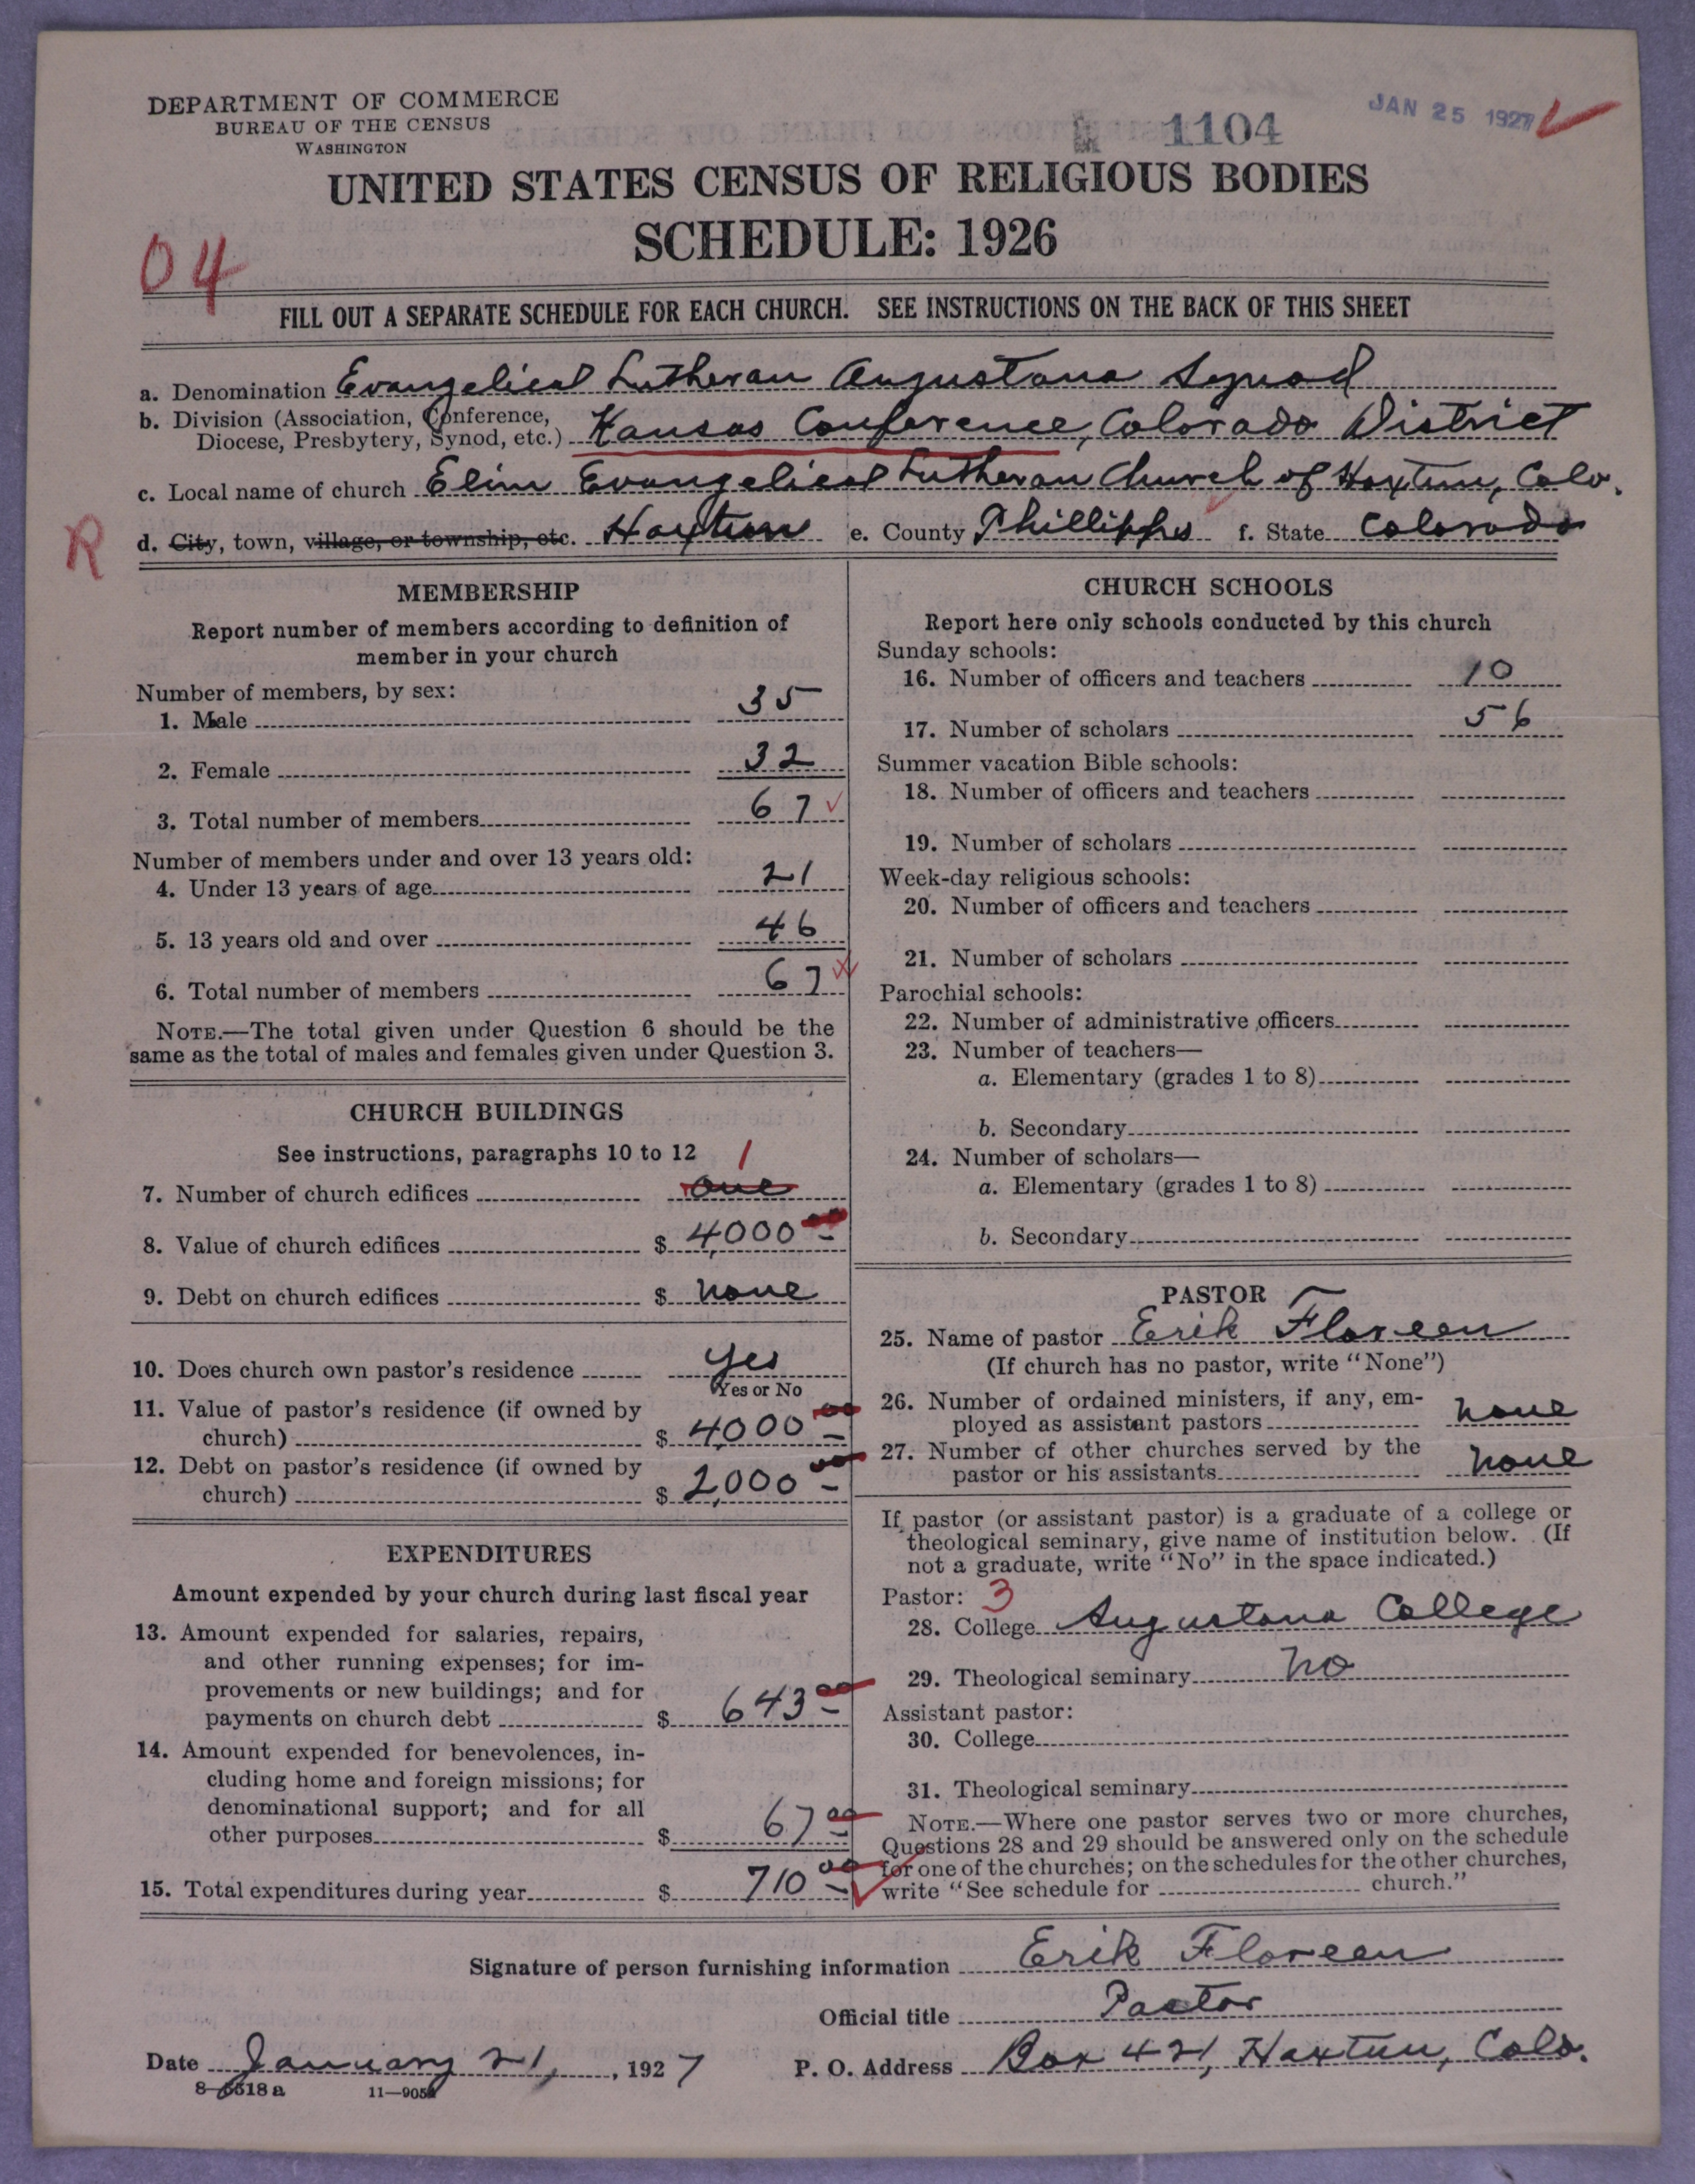 DEPARTMENT OF COMMERCE
BUREAU OF THE CENSUS
WASHINGTON
1104
JAN 25 1927
UNITED STATES CENSUS OF RELIGIOUS BODIES
SCHEDULE: 1926
04
FILL OUT A SEPARATE SCHEDULE FOR EACH CHURCH. SEE INSTRUCTIONS ON THE BACK OF THIS SHEET
a. Denomination Evangelical Lutheran Augustana Synod
b. Division (Association, Conference,
Diocese, Presbytery, Synod, etc.) Kansas Conference, Colorado District
c. Local name of church Elim Evangelical Lutheran Church of Haxtun, Colo.
R
d. City, town, village, or township, etc. Haxtun e. County Phillipps f. State Colorado
MEMBERSHIP
Report number of members according to definition of
member in your church
Number of members, by sex:
1. Male 35
2. Female 32
3. Total number of members 67
Number of members under and over 13 years old:
4. Under 13 years of age 21
5. 13 years old and over 46
6. Total number of members 67
NOTE.—The total given under Question 6 should be the
same as the total of males and females given under Question 3.
CHURCH BUILDINGS
See instructions, paragraphs 10 to 12 1
7. Number of church edifices one
8. Value of church edifices $ 4,000 00
9. Debt on church edifices $ none
10. Does church own pastor's residence yes
Yes or No
11. Value of pastor's residence (if owned by
church) $ 4,000 00
12. Debt on pastor's residence (if owned by
church) $ 2,000 00
EXPENDITURES
Amount expended by your church during last fiscal year
13. Amount expended for salaries, repairs,
and other running expenses; for im-
provements or new buildings; and for
payments on church debt $ 643 00
14. Amount expended for benevolences, in-
cluding home and foreign missions; for
denominational support; and for all
other purposes $ 67 00
15. Total expenditures during year $ 710 00
CHURCH SCHOOLS
Report here only schools conducted by this church
Sunday schools:
16. Number of officers and teachers 10
17. Number of scholars 56
Summer vacation Bible schools:
18. Number of officers and teachers
19. Number of scholars
Week-day religious schools:
20. Number of officers and teachers
21. Number of scholars
Parochial schools:
22. Number of administrative officers
23. Number of teachers—
a. Elementary (grades 1 to 8)
b. Secondary
24. Number of scholars—
a. Elementary (grades 1 to 8)
b. Secondary
PASTOR
25. Name of pastor Erik Floreen
(If church has no pastor, write "None")
26. Number of ordained ministers, if any, em-
ployed as assistant pastors none
27. Number of other churches served by the
pastor or his assistants none
If pastor (or assistant pastor) is a graduate of a college or
theological seminary, give name of institution below. (If
not a graduate, write "No" in the space indicated.)
Pastor: 3
28. College Augustana College
29. Theological seminary No
Assistant pastor:
30. College
31. Theological seminary
NOTE.—Where one pastor serves two or more churches,
Questions 28 and 29 should be answered only on the schedule
for one of the churches; on the schedules for the other churches,
write "See schedule for church."
Signature of person furnishing information Erik Floreen
Official title Pastor
Date January 21, 1927 P. O. Address Box 421, Haxtun, Colo.